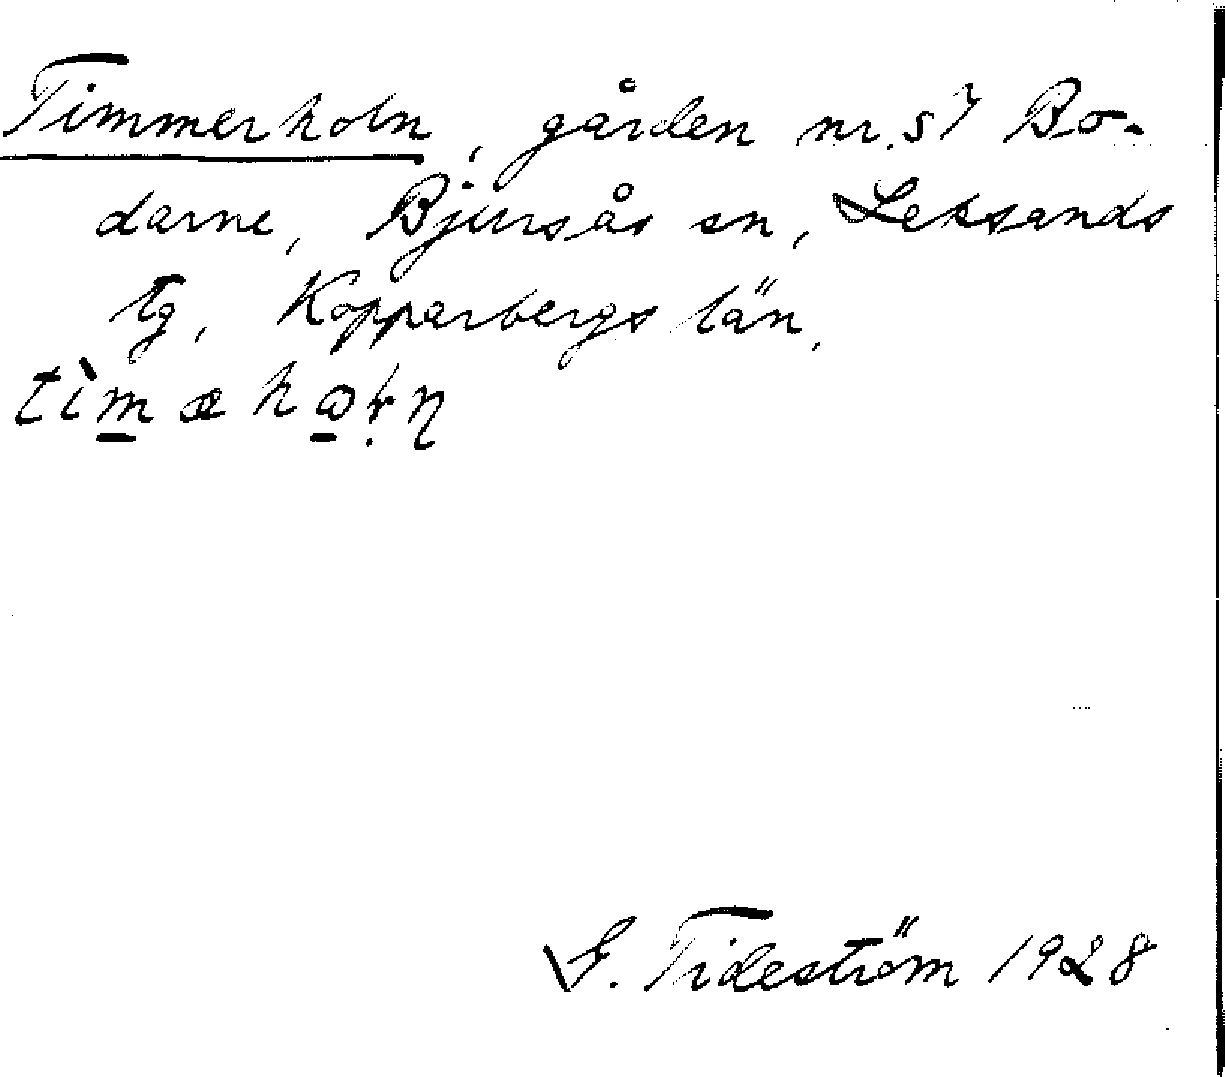 Timmerholn, gården nr. 57 Bo-
darne, Bjursås sn, Leksands
tg, Kopparbergs län.
tìmæ h
G. Tideström 1928